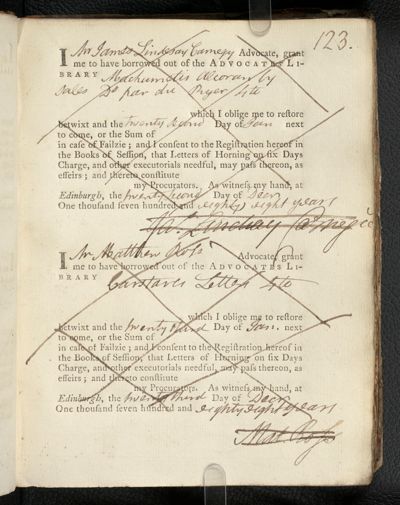 123.
I Mr James Lindsay Carnegy Advocate, grant
me to have borrowed out of the ADVOCATES LI-
BRARY Alcoran by
Sales Do par du Ryer 4to
which I oblige me to restore
betwixt and the twenty second Day of Jan. next
to come, or the Sum of
in case of Failzie; and I consent to the Registration hereof in
the Books of Session, that Letters of Horning on six Days
Charge, and other executorials needful, may pass thereon, as
effeirs; and thereto constitute
my Procurators. As witness my hand, at
Edinburgh, the twenty second Day of Decr
One thousand seven hundred and eighty eight years
Lindsay Carnegie
I Mr Matthew Ross Advocate, grant
me to have borrowed out of the ADVOCATES LI-
BRARY
Carstares Letters 4to
which I oblige me to restore
betwixt and the twenty third Day of Jan. next
to come, or the Sum of
in case of Failzie; and I consent to the Registration hereof in
the Books of Session, that Letters of Horning on six Days
Charge, and other executorials needful, may pass thereon, as
effeirs; and thereto constitute
my Procurators. As witness my hand, at
Edinburgh, the twenty third Day of Decr
One thousand seven hundred and eighty eight years
Mat. Ross